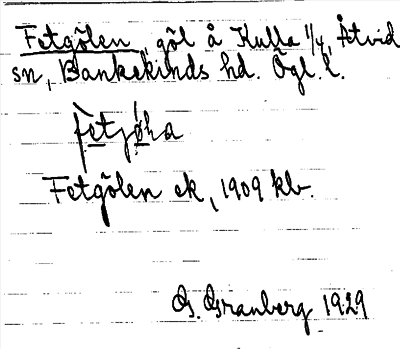 Fetgölen, göl å Kulla 1/4, Åtvid
sn, Bankekinds hd. Ögl. l.
fetjøha
Fetgölen ek, 1909 kb.
G. Granberg 1929